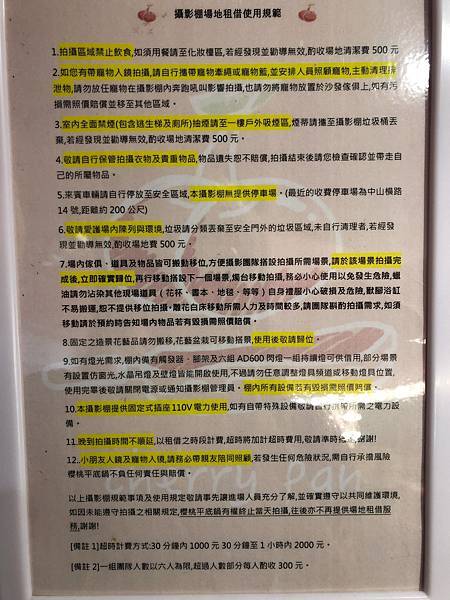 攝影棚場地租借使用規範
1.拍攝區域禁止飲食,如須用餐請至化妝區,若經發現並勸導無效,酌收場地清潔費 500 元
2.如您有帶寵物入鏡拍攝,請自行攜帶寵物牽繩或寵物籃,並安排人員照顧寵物,主動清理排
泄物,請勿放任寵物在攝影棚內奔跑吼叫影響拍攝,也請勿將寵物放置於沙發傢俱上,如有污
損需照價賠償並移至其他區域。
3.室內全面禁煙(包含逃生梯及廁所)抽煙請至一樓戶外吸煙區,煙蒂請攜至攝影棚垃圾桶丟
棄,若經發現並勸導無效,酌收場地清潔費 500 元。
4.敬請自行保管拍攝衣物及貴重物品,物品遺失恕不賠償,拍攝結束後請您檢查確認並帶走自
己的所屬物品。
5.來賓車輛請自行停放至安全區域,本攝影棚無提供停車場。(最近的收費停車場為中山橫路
14 號,距離約 200 公尺)
6.敬請愛護場內陳列與環境,垃圾請分類丟棄至安全門外的垃圾區域,未自行清理者,若經發
現並勸導無效,酌收場地費 500 元。
7.場內傢俱、道具及物品皆可搬動移位,方便攝影團隊搭設拍攝所需場景,請於該場景拍攝完
成後,立即確實歸位,再行移動搭設下一個場景,燭台移動拍攝,務必小心使用以免發生危險,蠟
油請勿沾染其他現場道具(花杯、書本、地毯、等等)自身禮服小心破損及危險,獸腳浴缸
不易搬運,恕不提供移位拍攝。雕花白床移動所需人力及時間較多,請團隊斟酌拍攝需求,如須
移動請於預約時告知場內物品若有毀損需照價賠償。
8.固定之造景花藝品請勿搬移,花藝盆栽可移動拍景,使用後敬請歸位。
9.如有燈光需求,棚內備有觸發器、腳架及六組 AD600 閃燈一組持續燈可供借用,部分場景
有設置仿窗光,水晶吊燈及壁燈皆能開啟使用,不過請勿任意調整燈具頻道或移動燈具位置,
使用完畢後敬請關閉電源或通知攝影棚管理員。棚內所有設備若有毀損需照價賠償。
10.本攝影棚提供固定式插座 110V 電力使用,如有自帶特殊設備敬請自行攜帶所需之電力設
備。
11.晚到拍攝時間不順延,以租借之時段計費,超時將加計超時費用,敬請準時抵達,謝謝!
12.小朋友入鏡及寵物入鏡,請務必帶親友陪同照顧,若發生任何危險狀況,需自行承擔風險
櫻桃平底鍋不負任何責任與賠償。
以上攝影棚規範事項及使用規定敬請事先讓進場人員充分了解,並確實遵守以共同維護環境,
如因未能遵守拍攝之相關規定,櫻桃平底鍋有權終止當天拍攝,往後亦不再提供場地租借服
務,謝謝!
[備註 1]超時計費方式:30 分鐘內 1000 元 30 分鐘至 1 小時內 2000 元。
[備註 2]一組團隊人數以六人為限,超過人數部分每人酌收 300 元。